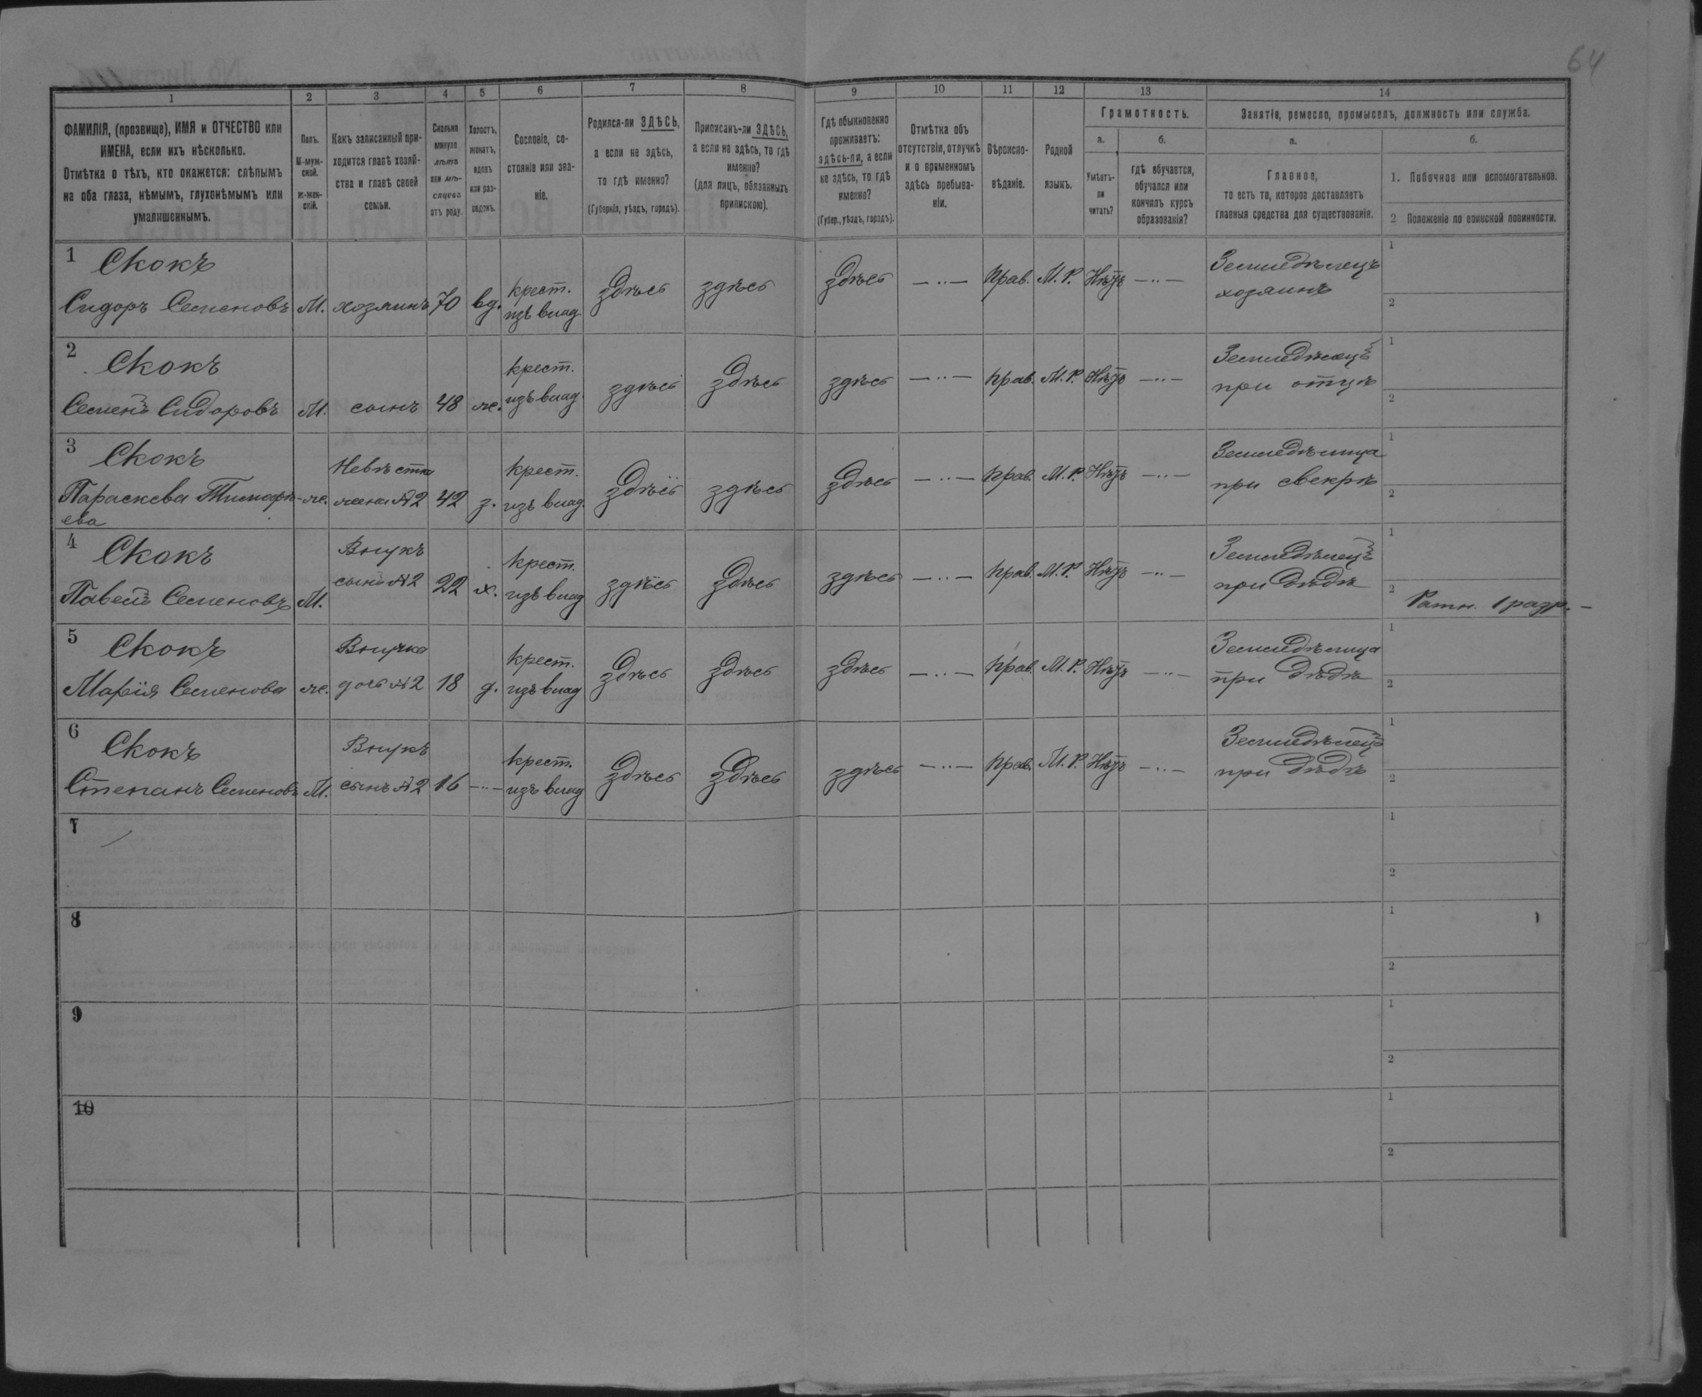 64
1
2
3
4
5
6
7
8
9
10
11
12
13
14
ФАМИЛІЯ, (прозвище), ИМЯ и ОТЧЕСТВО или
ИМЕНА, если ихъ нѣсколько.
Отмѣтка о тѣхъ, кто окажется: слѣпымъ
на оба глаза, нѣмымъ, глухонѣмымъ или
умалишеннымъ.
Полъ.
М-муж-
ской.
ж-жен-
скій.
Какъ записанный при-
ходится главѣ хозяй-
ства и главѣ своей
семьи.
Сколько
минуло
лѣтъ
или мѣ-
сяцевъ
отъ роду.
Холостъ,
женатъ,
вдовъ
или раз-
веденъ.
Сословіе, со-
стояніе или зва-
ніе.
Родился-ли ЗДѢСЬ,
а если не здѣсь,
то гдѣ именно?
(Губернія, уѣздъ, городъ).
Приписанъ-ли ЗДѢСЬ,
а если не здѣсь, то гдѣ
именно?
(для лицъ, обязанныхъ
припискою).
Гдѣ обыкновенно
проживаетъ:
здѣсь-ли, а если
не здѣсь, то гдѣ
именно?
(Губер., уѣздъ, городъ).
Отмѣтка объ
отсутствіи, отлучкѣ
и о временномъ
здѣсь пребыва-
ніи.
Вѣроиспо-
вѣданіе.
Родной
языкъ.
Грамотность.
а.
Умѣетъ-
ли
читать?
б.
гдѣ обучается,
обучался или
кончилъ курсъ
образованія?
Занятіе, ремесло, промыселъ, должность или служба.
а.
Главное,
то есть то, которое доставляетъ
главныя средства для существованія.
б.
1. Побочное или вспомогательное.
2 Положеніе по воинской повинности.
1 Скокъ
Сидоръ Семеновъ М. хозяинъ 70 вд. крест. изъ влад здѣсь здѣсь здѣсь — прав. М. Р. Нѣтъ — Земледѣлецъ хозяинъ 1 2
2 Скокъ
Семенъ Сидоровъ М. сынъ 48 ж. крест. изъ влад. здѣсь здѣсь здѣсь — прав. М. Р. Нѣтъ — Земледѣлецъ при отцѣ 1 2
3 Скокъ
Параскева Тимофе-
ева ж. Невѣстка жена №2 42 з. крест. изъ влад. здѣсь здѣсь здѣсь — прав. М. Р. Нѣтъ — Земледѣлица при свекрѣ 1 2
4 Скокъ
Павелъ Семеновъ М. Внукъ сынъ №2 22 х. крест. изъ влад здѣсь здѣсь здѣсь — прав. М. Р. Нѣтъ — Земледѣлецъ при дѣдѣ 1 2 Ратн. 1 разр. —
5 Скокъ
Марія Семенова ж. Внучка дочь №2 18 д. крест. изъ влад здѣсь здѣсь здѣсь — прав. М. Р. Нѣтъ — Земледѣлица при дѣдѣ 1 2
6 Скокъ
Степанъ Семеновъ М. Внукъ сынъ №2 16 — крест. изъ влад здѣсь здѣсь здѣсь — прав. М. Р. Нѣтъ — Земледѣлецъ при дѣдѣ 1 2
7 1 2
8 1 2
9 1 2
10 1 2